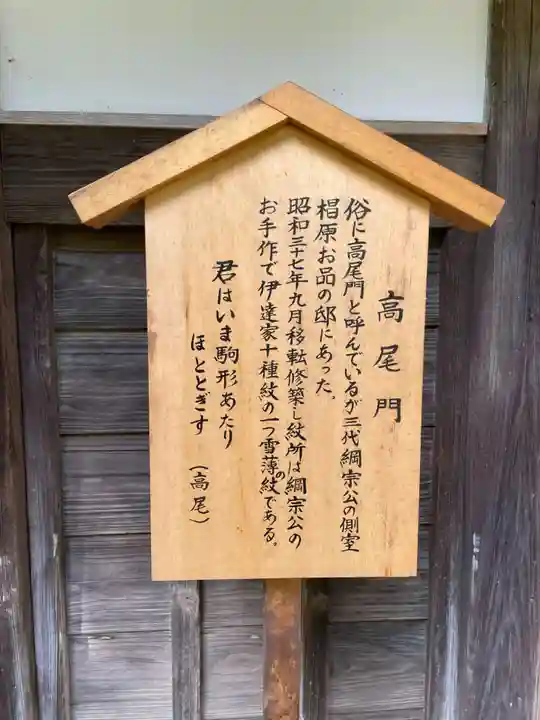 高尾門
俗に高尾門と呼んでいるが三代綱宗公の側室
椙原お品の邸にあった。
昭和三十七年九月移転修築し紋所は綱宗公の
お手作で伊達家十種紋の一つ雪薄の紋である。
君はいま駒形あたり
ほととぎす
(高尾)